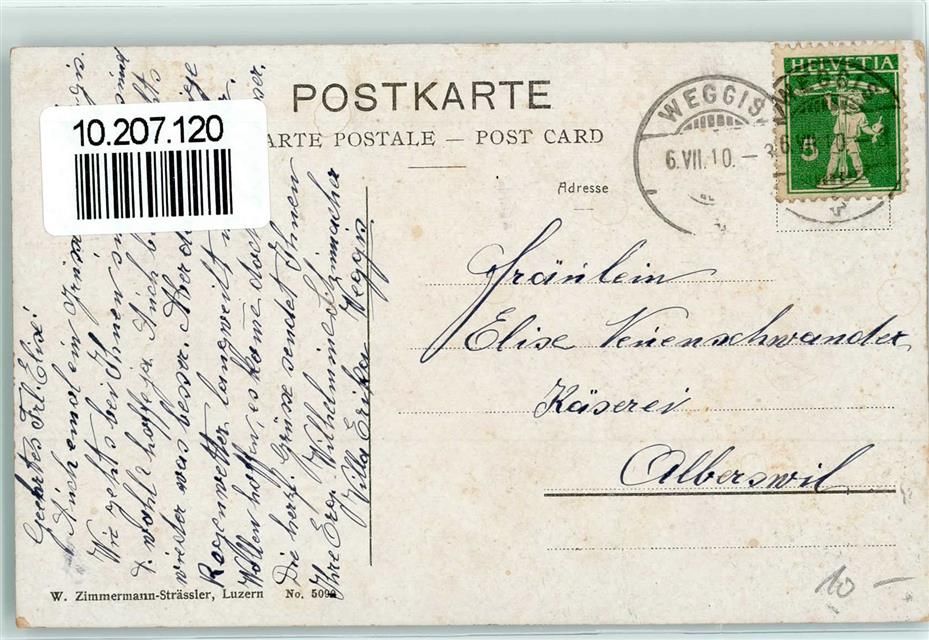 POSTKARTE
ARTE POSTALE — POST CARD
10.207.120
Adresse
WEGGIS
6.VII.10.-
HELVETIA
5
Fräulein
Elise Neuenschwander
Käserei
Alberswil
Geehrtes Frl. Elise!
Auch einmal ein
Wie geht's bei Ihnen
wohl hoffe ja. Auch b
wieder was besser. Aber d
Regenwetter langweilt
Wollen hoffen, es komme doch
Die herzl. Grüsse sendet Ihnen
Ihre Erg. Wilhelmine
Villa Erika Weggis
W. Zimmermann-Strässler, Luzern No. 509
10 —